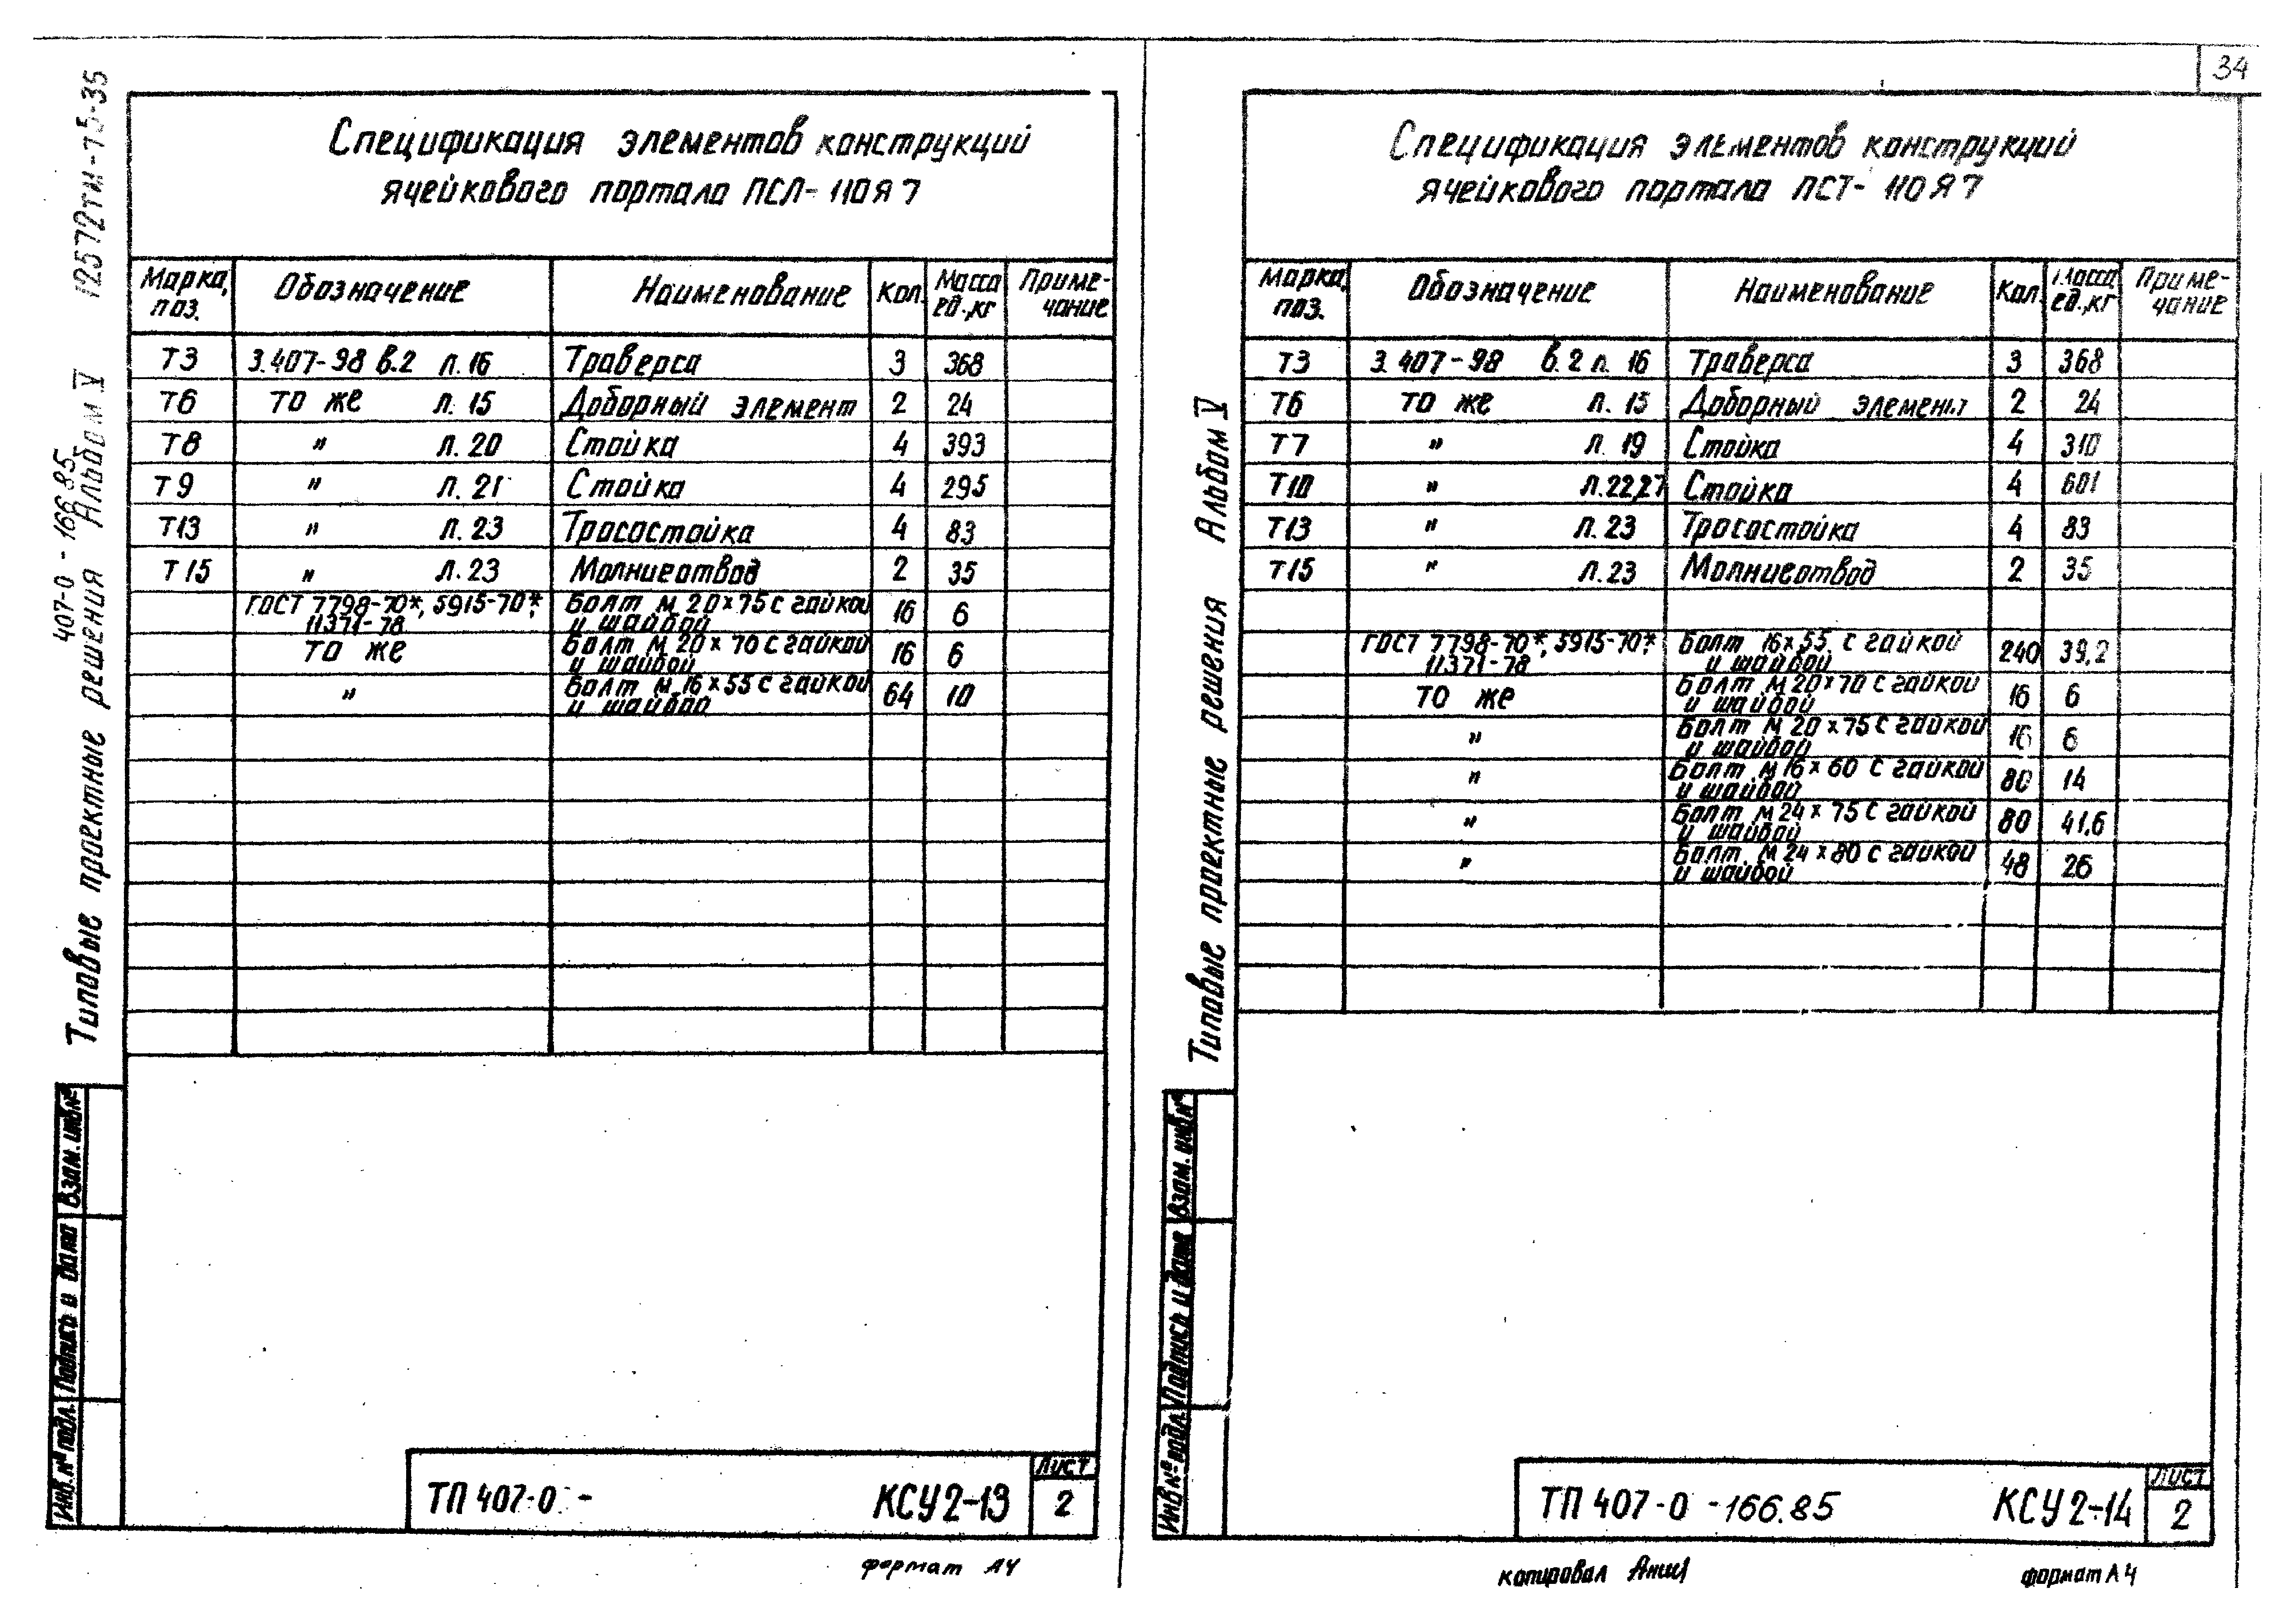 34
12572тм-75-35
407-0-166.85
Типовые проектные решения Альбом V
Спецификация элементов конструкций
ячейкового портала ПСЛ-110Я7
Марка, поз. Обозначение Наименование Кол. Масса ед.,кг Приме-чание
Т3 3.407-98 в.2 л.16 Траверса 3 368
Т6 то же л.15 Доборный элемент 2 24
Т8 " л.20 Стойка 4 393
Т9 " л.21 Стойка 4 295
Т13 " л.23 Тросостойка 4 83
Т15 " л.23 Молниеотвод 2 35
ГОСТ 7798-70*, 5915-70*, 11371-78 Болт м 20×75 с гайкой и шайбой 16 6
то же Болт м 20×70 с гайкой и шайбой 16 6
" Болт м 16×55 с гайкой и шайбой 64 10
Инв.№ подл. Подпись и дата Взам. инв.№
ТП 407-0 - КСУ2-13 Лист 2
формат А4
Типовые проектные решения Альбом V
Спецификация элементов конструкций
ячейкового портала ПСТ-110Я7
Марка, поз. Обозначение Наименование Кол. Масса ед.,кг Приме-чание
Т3 3.407-98 в.2 л.16 Траверса 3 368
Т6 то же л.15 Доборный элемент 2 24
Т7 " л.19 Стойка 4 310
Т10 " л.22,27 Стойка 4 601
Т13 " л.23 Тросостойка 4 83
Т15 " л.23 Молниеотвод 2 35
ГОСТ 7798-70*, 5915-70*, 11371-78 Болт 16×55 с гайкой и шайбой 240 39,2
то же Болт м20×70 с гайкой и шайбой 16 6
" Болт м 20×75 с гайкой и шайбой 16 6
" Болт м16×60 с гайкой и шайбой 80 14
" Болт м24×75 с гайкой и шайбой 80 41.6
" Болт м24×80 с гайкой и шайбой 48 26
Инв.№ подл. Подпись и дата Взам. инв.№
ТП 407-0-166.85 КСУ2-14 Лист 2
копировал
формат А4